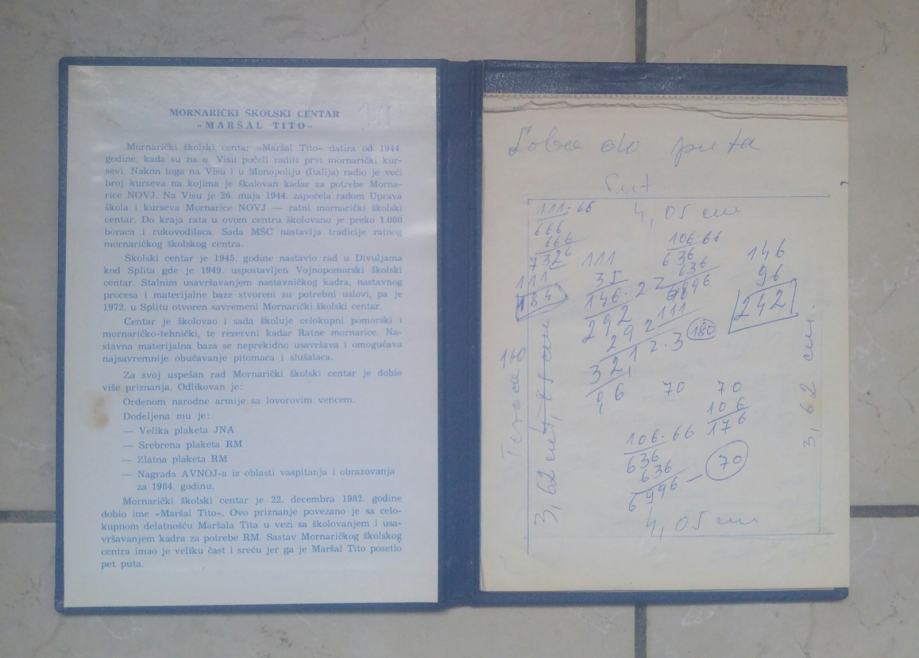 MORNARIČKI ŠKOLSKI CENTAR
»MARŠAL TITO«
Mornarički školski centar »Maršal Tito« datira od 1944
godine, kada su na o. Visu počeli raditi prvi mornarički kur-
sevi. Nakon toga na Visu i u Monopoliju (Italija) radio je veći
broj kurseva na kojima je školovan kadar za potrebe Morna-
rice NOVJ. Na Visu je 26. maja 1944. započela radom Uprava
škola i kurseva Mornarice NOVJ — ratni mornarički školski
centar. Do kraja rata u ovom centru školovano je preko 1.000
boraca i rukovodilaca. Sada MŠC nastavlja tradicije ratnog
mornaričkog školskog centra.
Školski centar je 1945. godine nastavio rad u Divuljama
kod Splita gde je 1949. uspostavljen Vojnopomorski školski
centar. Stalnim usavršavanjem nastavničkog kadra, nastavnog
procesa i materijalne baze stvoreni su potrebni uslovi, pa je
1972. u Splitu otvoren savremeni Mornarički školski centar.
Centar je školovao i sada školuje celokupni pomorski i
mornaričko-tehnički, te rezervni kadar Ratne mornarice. Na-
stavna materijalna baza se neprekidno usavršava i omogućava
najsavremnije obučavanje pitomaca i slušalaca.
Za svoj uspešan rad Mornarički školski centar je dobio
više priznanja. Odlikovan je:
Ordenom narodne armije sa lovorovim vencem.
Dodeljena mu je:
— Velika plaketa JNA
— Srebrena plaketa RM
— Zlatna plaketa RM
— Nagrada AVNOJ-a iz oblasti vaspitanja i obrazovanja
za 1984. godinu.
Mornarički školski centar je 22. decembra 1982. godine
dobio ime »Maršal Tito«. Ovo priznanje povezano je sa celo-
kupnom delatnošću Maršala Tita u vezi sa školovanjem i usa-
vršavanjem kadra za potrebe RM. Sastav Mornaričkog školskog
centra imao je veliku čast i sreću jer ga je Maršal Tito posetio
pet puta.
Soba do puta
4,05 cm
111·66
666
666
7326
111
184
111
35
146·2
292
292
111
3212·3
180
96
106·66
636
636
6996
146
96
242
70
70
106
176
106·66
636
636
6996
70
160
3,62 cm
3,62 cm
4,05 cm